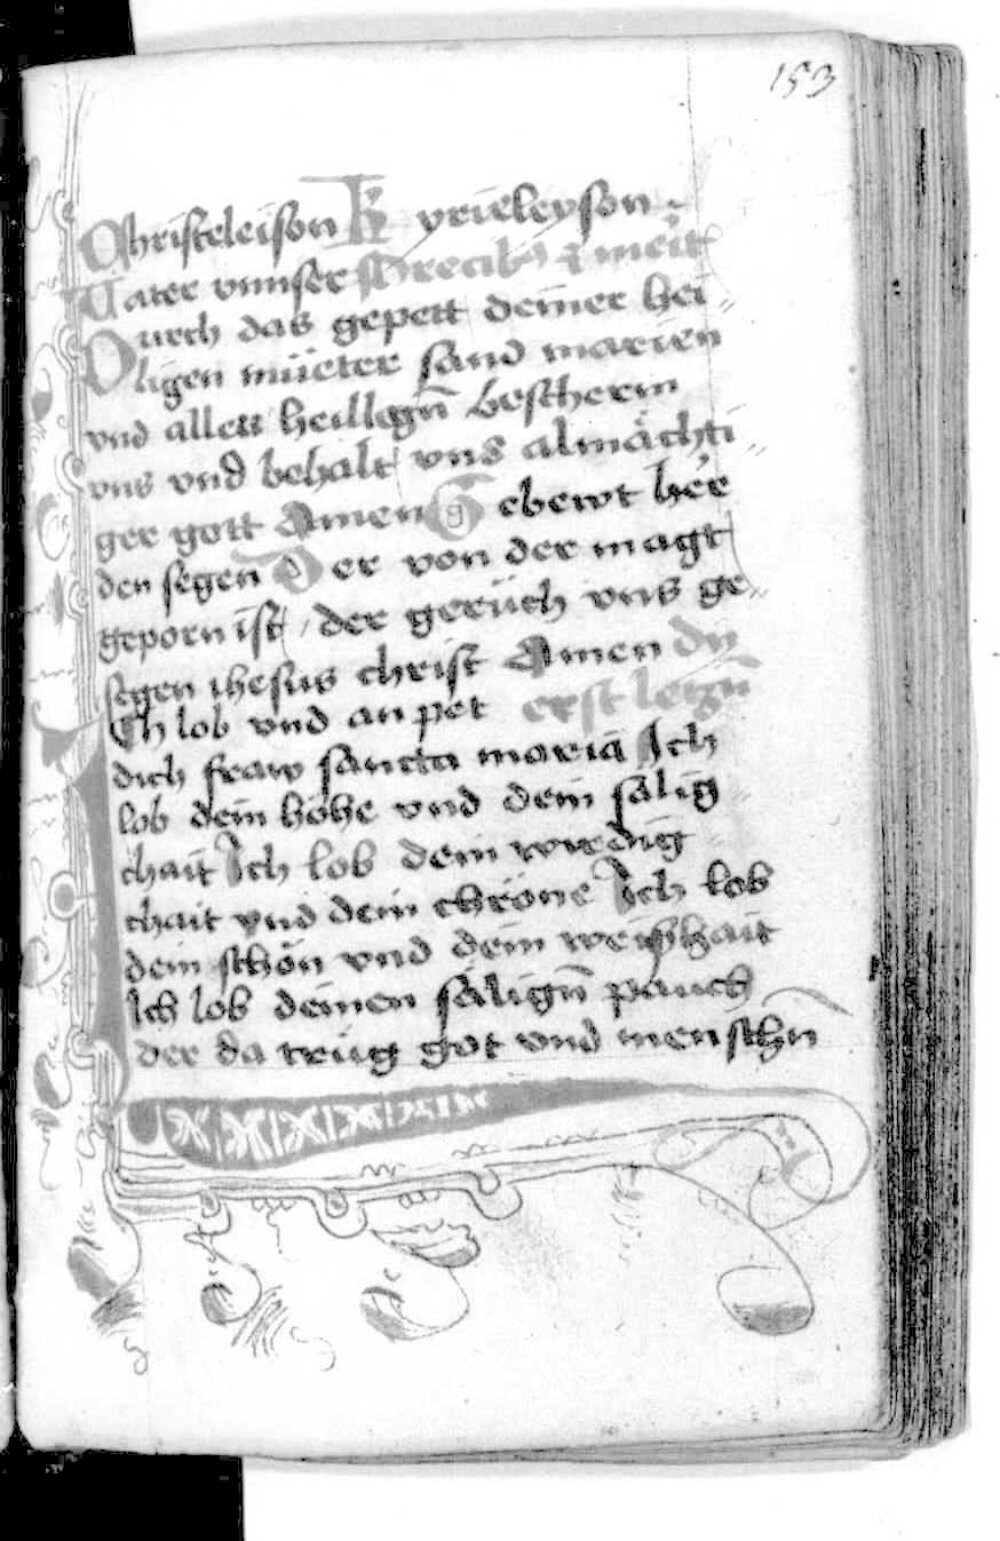 153
Christeleison Kyrieleyson
Vater vnnser Precib9 et meit
Durch das gepett deiner hei„
ligen müeter sand marien
vnd allen heilligñ bescherm
vns vnd behalt vns almächti„
ger gott Amen Gebewt her
den segen Der von der magt
geporn ist / der gerüch vns ge„
segen ihesus christ Amen dy
Ich lob vnd an pet erst leczñ
dich fraw sancta maria Ich
lob dein höhe vnd dein sälig
chait Ich lob dein wirdig
chait vnd dein chröne Ich lob
dein schön vnd dein weishait
Ich lob deinen säligñ pauch
der da trüg got vnd menschn